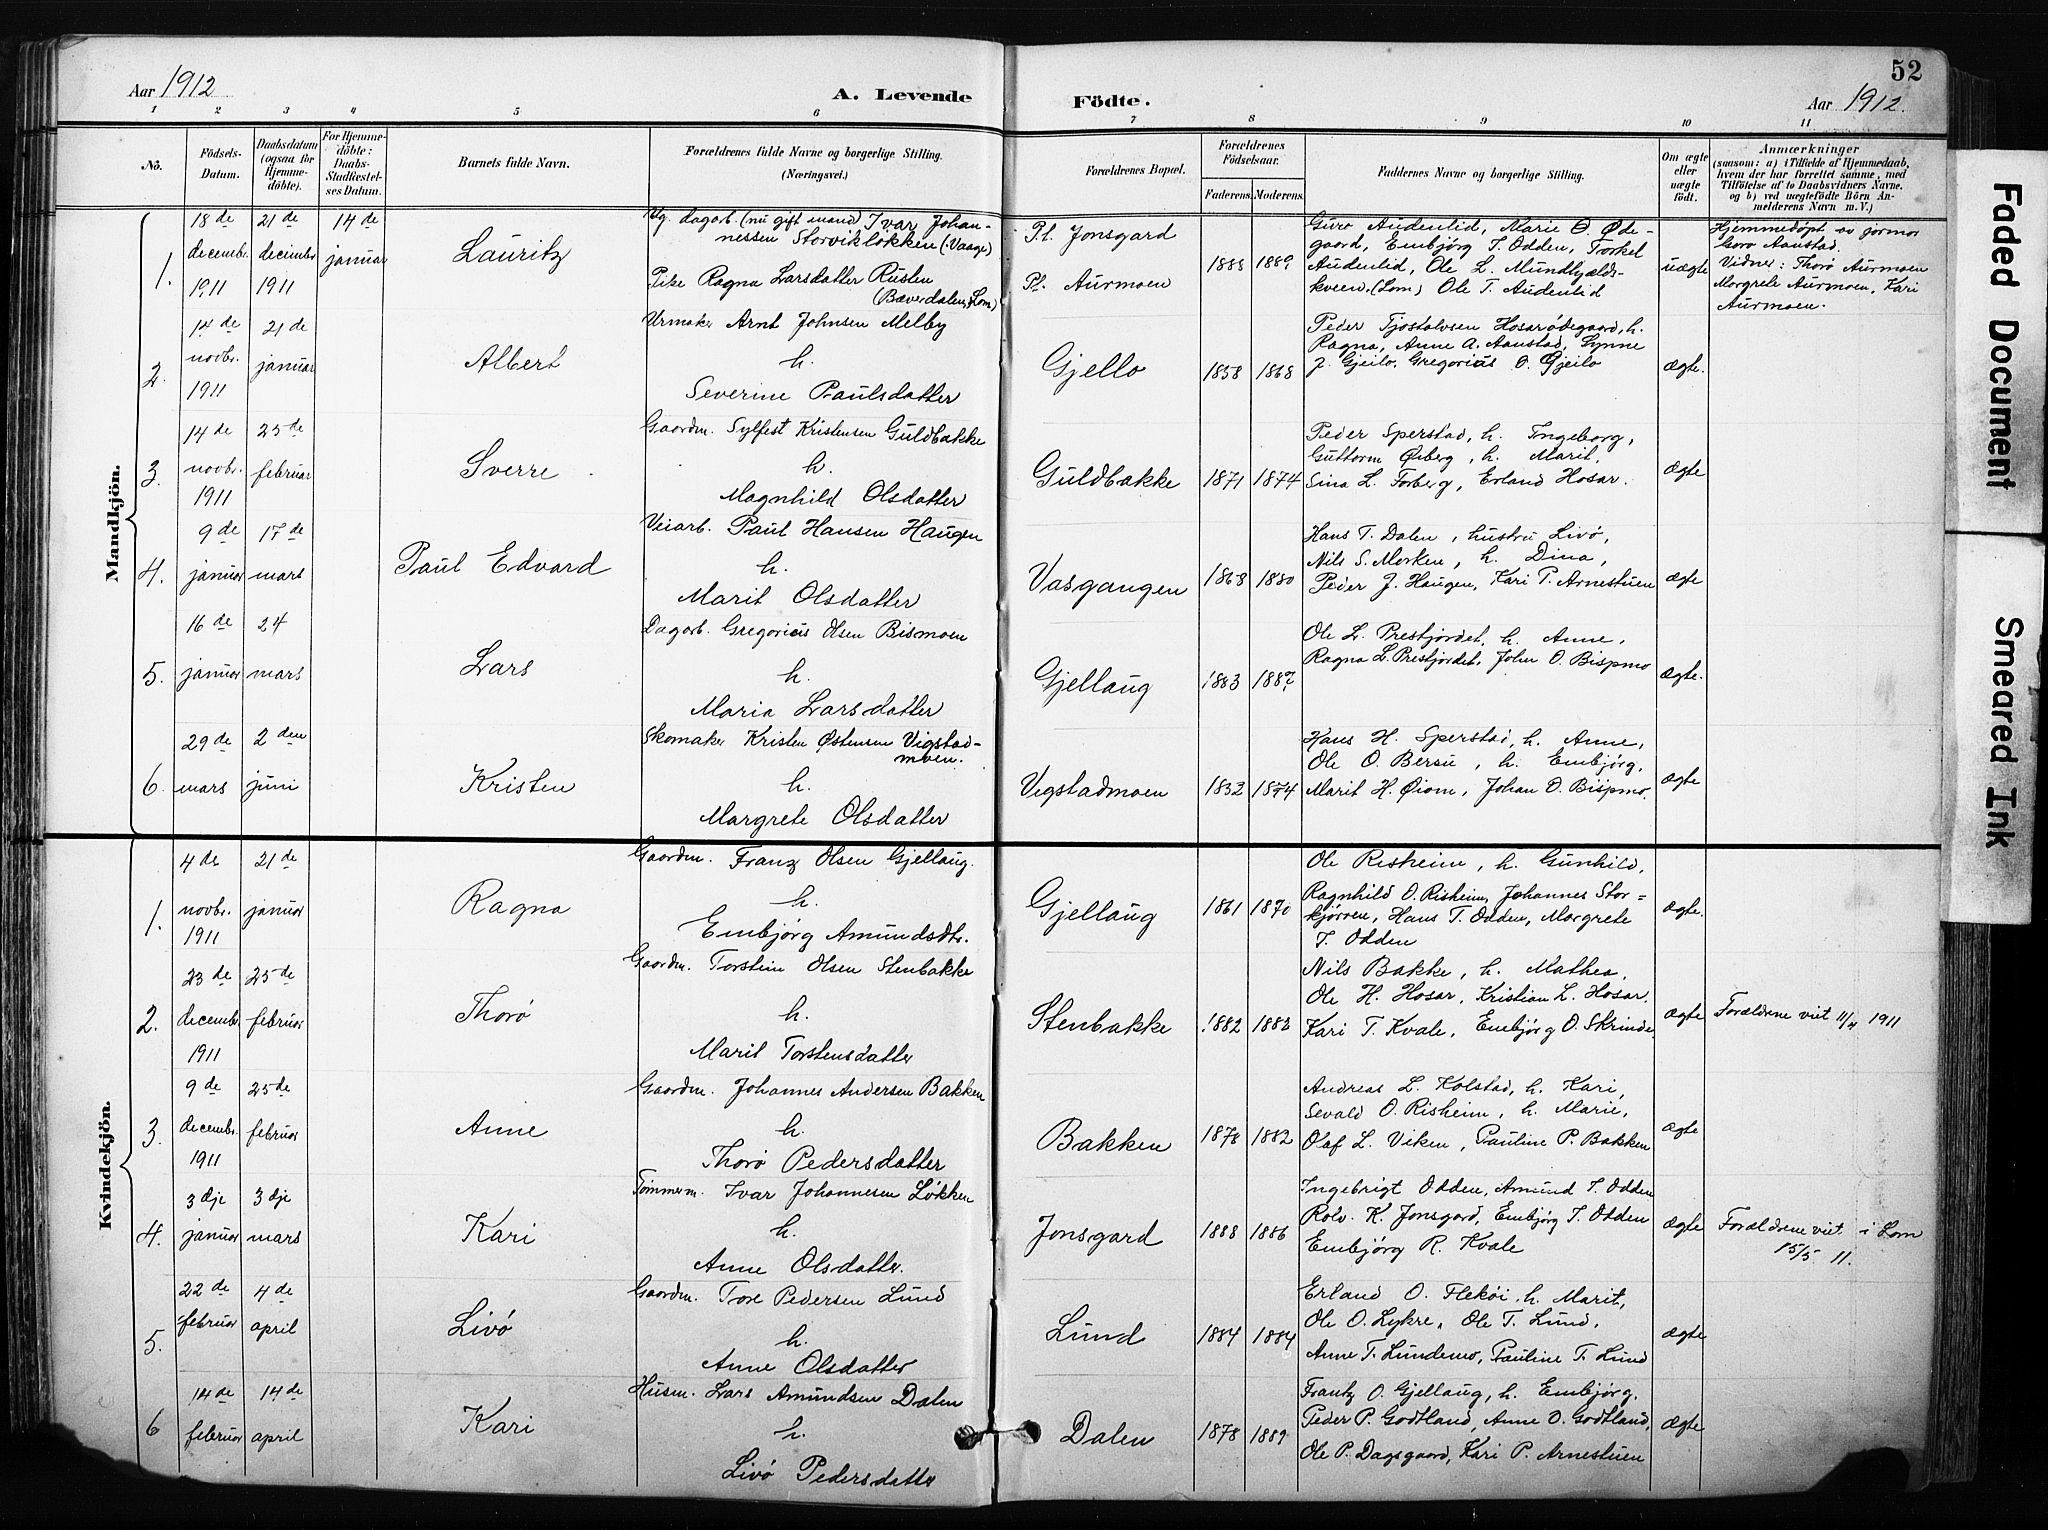 52
Aar 1912
A. Levende Födte.
Aar 1912.
1 2 3 4 5 6 7 8 9 10 11
No.
Födsels-
Datum.
Daabsdatum
(ogsaa for
Hjemme-
döbte).
For Hjemme-
döbte:
Daabs-
Stadfæstel-
ses Datum.
Barnets fulde Navn.
Forældrenes fulde Navne og borgerlige Stilling.
(Næringsvei.)
Forældrenes Bopæl.
Forældrenes
Födselsaar.
Faderens. Moderens.
Faddernes Navne og borgerlige Stilling.
Om ægte
eller
uægte
födt.
Anmærkninger
(saasom: a) i Tilfælde af Hjemmedaab,
hvem der har forrettet samme, med
Tilföielse af to Daabsvidners Navne.
og b) ved uægtefödte Börn An-
melderens Navn m. V.)
Mandkjön.
1.
18 de
decembr.
1911
21 de
december
1911
14 de
januar
Lauritz
Ug. dagarb. (nu gift mand) Ivar Johan-
nessen Storvikløkken (Vaage)
Pike Ragna Larsdatter Rusten
(Bæverdalen, Lom)
Pt. Jonsgard
Pt. Aurmoen
1888 1889
Guro Audenlid, Marie O. Øde-
gaard, Embjörg T. Odden, Torkel
Audenlid, Ole L. Mundhjælds-
kveen (Lom) Ole T. Audenlid
uægte
Hjemmedöpt av jormor
Goro Aanstad.
Vidner: Thorø Aurmoen
Margrete Aurmoen, Kari
Aurmoen.
2.
14 de
novbr.
1911
21 de
januar
Albert
Urmaker Arnt Johnsen Melby
h.
Severine Paulsdatter
Gjello
1858 1868
Peder Tjostolvsen Hosarødegaard, h.
Ragna, Anne A. Aanstad, Synne
J. Gjeilo, Gregorius O. Gjeilo
ægte.
3.
14 de
novbr.
1911
25 de
februar
Sverre
Gaardm. Sylfest Kristensen Guldbakke
h.
Magnhild Olsdatter
Guldbakke
1871 1874
Peder Sperstad, h. Ingeborg,
Guttorm Øiberg, h. Marit,
Sina L. Forberg, Erland Hosar.
ægte
4.
9 de
januar
17 de
mars
Paul Edvard
Veiarb. Paul Hansen Haugen
h.
Marit Olsdatter
Vasgangen
1868 1880
Hans T. Dalen, hustru Livø,
Nils S. Morken, h. Dina,
Peder J. Haugen, Kari P. Arnestuen
ægte
5.
16 de
januar
24
mars
Lars
Dagarb. Gregorius Olsen Bismoen
h.
Maria Larsdatter
Gjellaug
1883 1887
Ole L. Prestjordet, h. Anne,
Ragna L. Prestjordet, John O. Bispmo
ægte.
6.
29 de
mars
2 den
juni
Kristen
Skomaker Kristen Østensen Vigstad-
moen.
h.
Margrete Olsdatter
Vigstadmoen
1832 1874
Hans H. Sperstad, h. Anne,
Ole O. Bersu, h. Embjörg,
Marit H. Øiom, Johan O. Bispmo.
ægte
Kvindekjön.
1.
4 de
novbr.
1911
21 de
januar
Ragna
Gaardm. Franz Olsen Gjellaug.
h.
Embjörg Amundsdtr.
Gjellaug
1861 1870
Ole Risheim, h. Gunhild,
Ragnhild O. Risheim, Johannes Stor-
kjörren, Hans T. Odden, Margrete
T. Odden
ægte.
2.
23 de
decembr.
1911
25 de
februar
Thorø
Gaardm. Torstein Olsen Stenbakke
h.
Marit Torstensdatter
Stenbakke
1882 1883
Nils Bakke, h. Mathea,
Ole H. Hosar, Kristian L. Hosar.
Kari T. Kvale, Embjörg O. Skrinde.
ægte
Forældrene viet 11/4 1911
3.
9 de
decembr.
1911
25 de
februar
Anne
Gaardm. Johannes Andersen Bakken
h.
Thorø Pedersdatter
Bakken
1878 1882
Andreas L. Kolstad, h. Kari,
Sevald O. Risheim, h. Marie,
Olaf L. Viken, Pauline P. Bakken
ægte
4.
3 dje
januar
3 dje
mars
Kari
Tømmerm. Ivar Johannesen Løkken
h.
Anne Olsdatter.
Jonsgard
1888 1886
Ingebrigt Odden, Amund T. Odden
Rolv. K. Jonsgard, Embjörg T. Odden
Embjörg R. Kvale
ægte
Forældrene viet i Lom
15/5 11.
5.
22 de
februar
4 de
april
Livø
Gaardm. Tore Pedersen Lund
h.
Anne Olsdatter
Lund
1884 1884
Erland O. Flekøi, h. Marit,
Ole O. Lykre, Ole T. Lund,
Anne T. Lundemo, Pauline T. Lund
ægte
6
14 de
februar
14 de
april
Kari
Husm. Lars Amundsen Dalen
h.
Livø Pedersdatter
Dalen
1878 1889
Frantz O. Gjellaug, h. Embjörg,
Peder P. Godtland, Anne O. Godtland,
Ole P. Dagsgaard, Kari P. Arnestuen
ægte
Faded Document
Smeared Ink